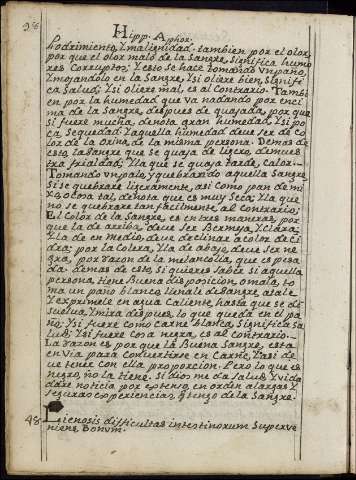 98
Hipp. Aphor.
Podrimiento, Y malignidad. tambien, por el olor,
por que el olor malo, de la Sangre, Significa humo
res Corruptos; Y esto se haçe tomando vn paño,
Y mojandolo en la Sangre, Y si oliere bien, Signifi
ca Salud; Y si oliere mal, es al Contrario. Tambi
en por la humedad que va nadando por enci
ma de la Sangre, despues de quajada, por que
si fuere mucha, denota gran humedad, Y si po
ca Sequedad: Y aquella humedad deue ser de co
lor de la orina, de la misma persona. Demas de
esto, la Sangre que se quaja de ligero, demues
tra frialdad; Y la que se quaja tarde, Calor.
Tomando vn palo, y quebrando aquella Sangre,
Si se quebrare ligeramente, asi como pan de mi
xo, o cosa tal, denota que es muy Seca; Y la que
no se quebrare tan facilmente, al Contrario.
El Color de la Sangre, es en tres maneras, por
que la de arriba, deue ser Bermeja, Y Clara;
Y la de en Medio, deue declinar a color de Ci
dra; por la Colera, Y la de abajo, deue ser ne
gra, por razon de la melancolia, que es pesa
da. demas de esto, si quieres Saber si aquella
persona, tiene Buena disposicion, o mala, to
ma un paño blanco, llenale de Sangre, atale,
Y exprimele en agua Caliente, hasta que se di
suelua, Y mira despues, lo que queda en el pa
ño; Y si fuere como Carne blanca, Significa Sa
lud; Y si fuere cosa negra, es al Contrario.
La razon es por que la Buena Sangre, esta
en via para Conuertirse en Carne, Y asi de
ue tener con ella proporcion. Pero lo que es
negro, no la tiene. Si dios me da Salud, Y vida
dare noticia por extenso, en orden a largas, Y
seguras experiencias, q tengo de la Sangre.
48 Lienosis difficultas intestinorum Superue
niens Bonum.